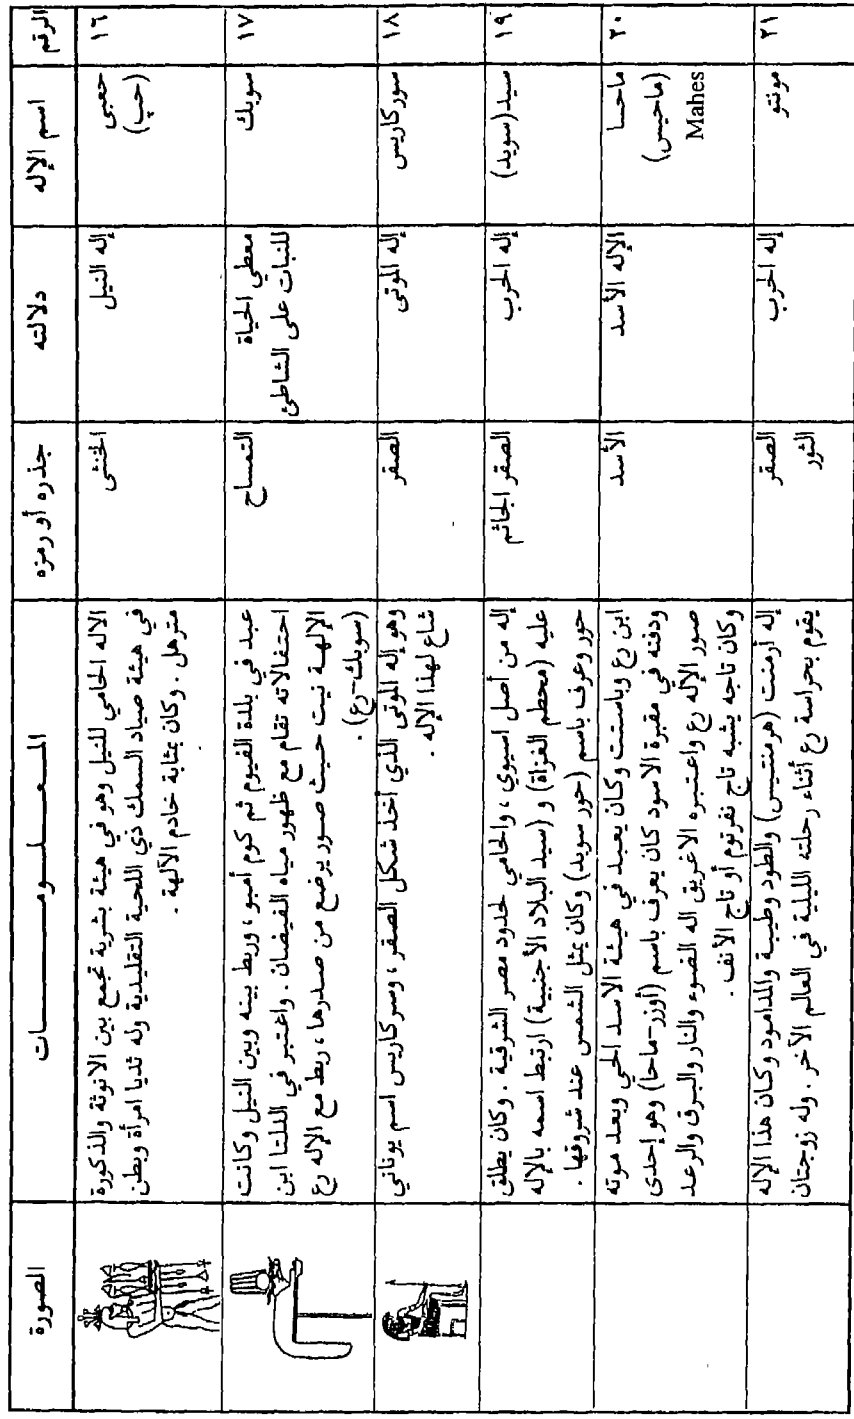 الرقم
اسم الإله
دلالته
جذره أو رمزه
المعلومات
الصورة
١٦
حعبي
(حب)
إله النيل
الخنثى
الاله الحامي للنيل وهو في هيئة بشرية تجمع بين الانوثة والذكورة
في هيئة صياد السمك ذي اللحية التقليدية وله ثديا امرأة وبطن
مترهل . وكان بمثابة خادم الآلهة .
١٧
سوبك
معطي الحياة
للنبات على الشاطئ
التمساح
عبد في بلدة الفيوم ثم كوم أمبو ، وربط بينه وبين النيل وكانت
احتفالاته تقام مع ظهور مياه الفيضان . واعتبر في الدلتا ابن
الإلهة نيت حيث صور يرضع من صدرها ، ربط مع الإله رع
(سوبك-رع) .
١٨
سوركاريس
إله الموتى
الصقر
وهو إله الموتى الذي أخذ شكل الصقر ، وسركاريس اسم يوناني
شاع لهذا الإله .
١٩
سيد (سوبد)
إله الحرب
الصقر الجاثم
إله من أصل اسيوي ، والحامي لحدود مصر الشرقية . وكان يطلق
عليه (محطم الغزاة) و (سيد البلاد الأجنبية) ارتبط اسمه بالإله
حور وعرف باسم (حور سوبد) وكان يمثل الشمس عند شروقها .
٢٠
ماحسا
(ماحيس)
Mahes
الإله الأسد
الأسد
ابن رع وباستت وكان يعبد في هيئة الاسد الحي وبعد موته
ودفنه في مقبرة الاسود كان يعرف باسم (أوزر-ماحا) وهو إحدى
صور الإله رع واعتبره الاغريق اله الضوء والنار والبرق والرعد
وكان تاجه يشبه تاج نفرتوم أو تاج الأتف .
٢١
مونتو
إله الحرب
الصقر
الثور
إله أرمنت (هرمنتيس) والطود وطيبة والمدامود وكان هذا الإله
يقوم بحراسة رع أثناء رحلته الليلية في العالم الآخر . وله زوجتان